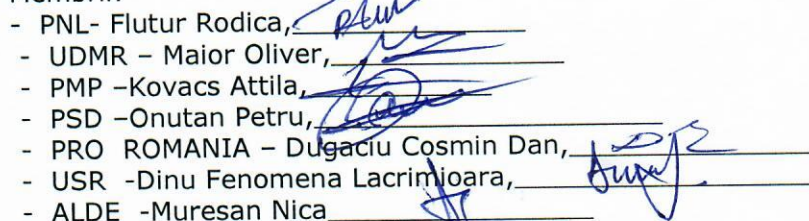 - PNL- Flutur Rodica,
- UDMR – Maior Oliver,
- PMP –Kovacs Attila,
- PSD –Onutan Petru,
- PRO ROMANIA – Dugaciu Cosmin Dan,
- USR -Dinu Fenomena Lacrimioara,
- ALDE -Muresan Nica